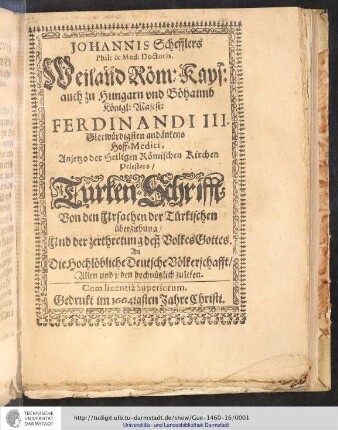 JOHANNIS Schefflers
Phil: & Med: Doctoris.
Weiland Röm: Kays:
auch zu Hungarn vnd Böhaimb
Königl: Majest:
FERDINANDI III.
Glorwürdigsten andänkens
Hoff-Medici,
Anjetzo der Heiligen Römischen Kirchen
Priesters/
Türken-Schrifft
Von den Ursachen der Türkischen
überziehung/
Und der zertretung deß Volkes Gottes.
An
Die Hochlöbliche Deutsche Völkerschafft/
Allen und jeden hochnützlich zulesen.
Cum licentiâ Superiorum.
Gedrukt im 1664sten Jahre Christi.
TECHNISCHE
UNIVERSITÄT
DARMSTADT
http://tudigit.ulb.tu-darmstadt.de/show/Gue-1460-16/0001
Universitäts- und Landesbibliothek Darmstadt